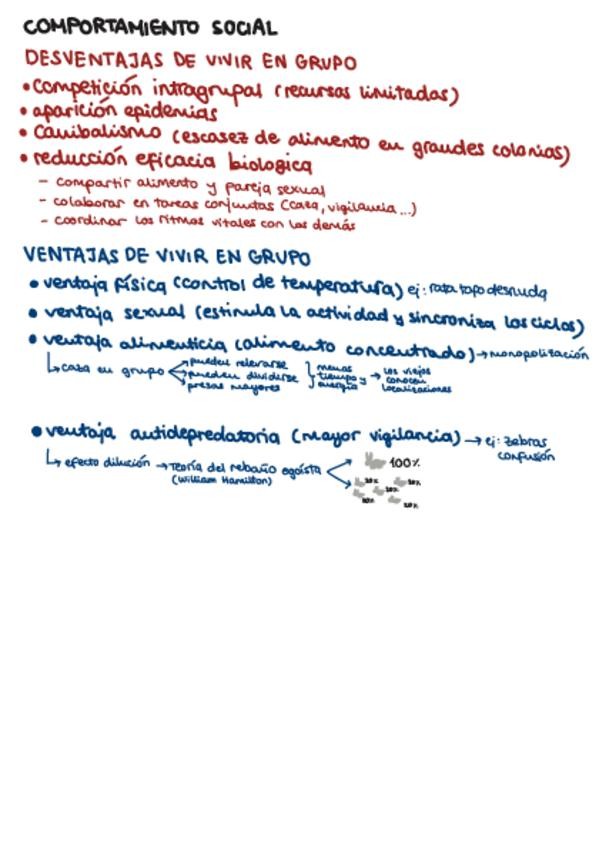 COMPORTAMIENTO SOCIAL
DESVENTAJAS DE VIVIR EN GRUPO
• competición intragrupal (recursos limitados)
• aparición epidemias
• canibalismo (escasez de alimento en grandes colonias)
• reducción eficacia biologica
- compartir alimento y pareja sexual
- colaborar en tareas conjuntas (caza, vigilancia ...)
- coordinar los ritmos vitales con los demás
VENTAJAS DE VIVIR EN GRUPO
• ventaja física (control de temperatura) ej: rata topo desnuda
• ventaja sexual (estimula la actividad y sincroniza los ciclos)
• ventaja alimenticia (alimento concentrado) → monopolización
↳ caza en grupo
pueden relevarse
pueden dividirse
presas mayores
menos
tiempo y
energía
→ los viejos
conocen
localizaciones
• ventaja antidepredatoria (mayor vigilancia) → ej: zebras
confusión
↳ efecto dilución → Teoría del rebaño egoísta
(William Hamilton)
100%
20% 20%
20%
20% 20%